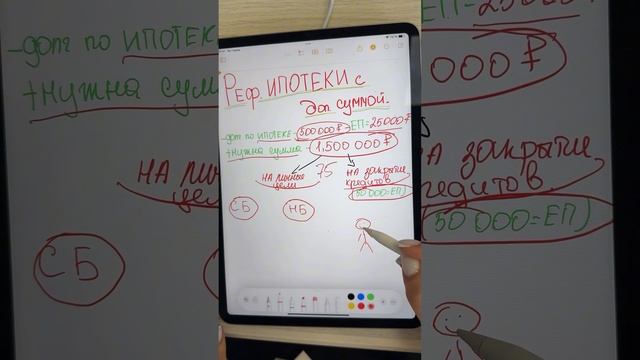 РЕФ. ИПОТЕКИ с
доп суммой.
-долг по ИПОТЕКЕ - 500 000 ₽ ЕП=25000 ₽
+нужна сумма - 1,500 000 ₽
на любые
цели
75
на закрытие
кредитов
(50 000=ЕП)
СБ
НБ